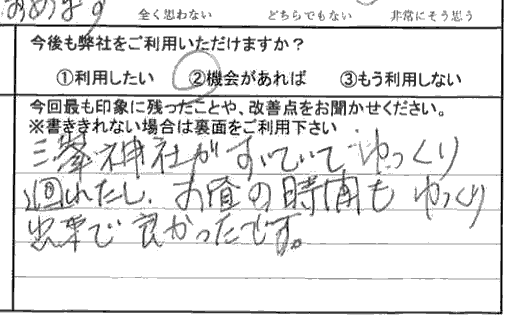 全く思わない どちらでもない 非常にそう思う
今後も弊社をご利用いただけますか？
①利用したい ②機会があれば ③もう利用しない
今回最も印象に残ったことや、改善点をお聞かせください。
※書ききれない場合は裏面をご利用下さい
三峯神社がすいていてゆっくり
回れたし、お昼の時間もゆっくり
出来て良かったです。